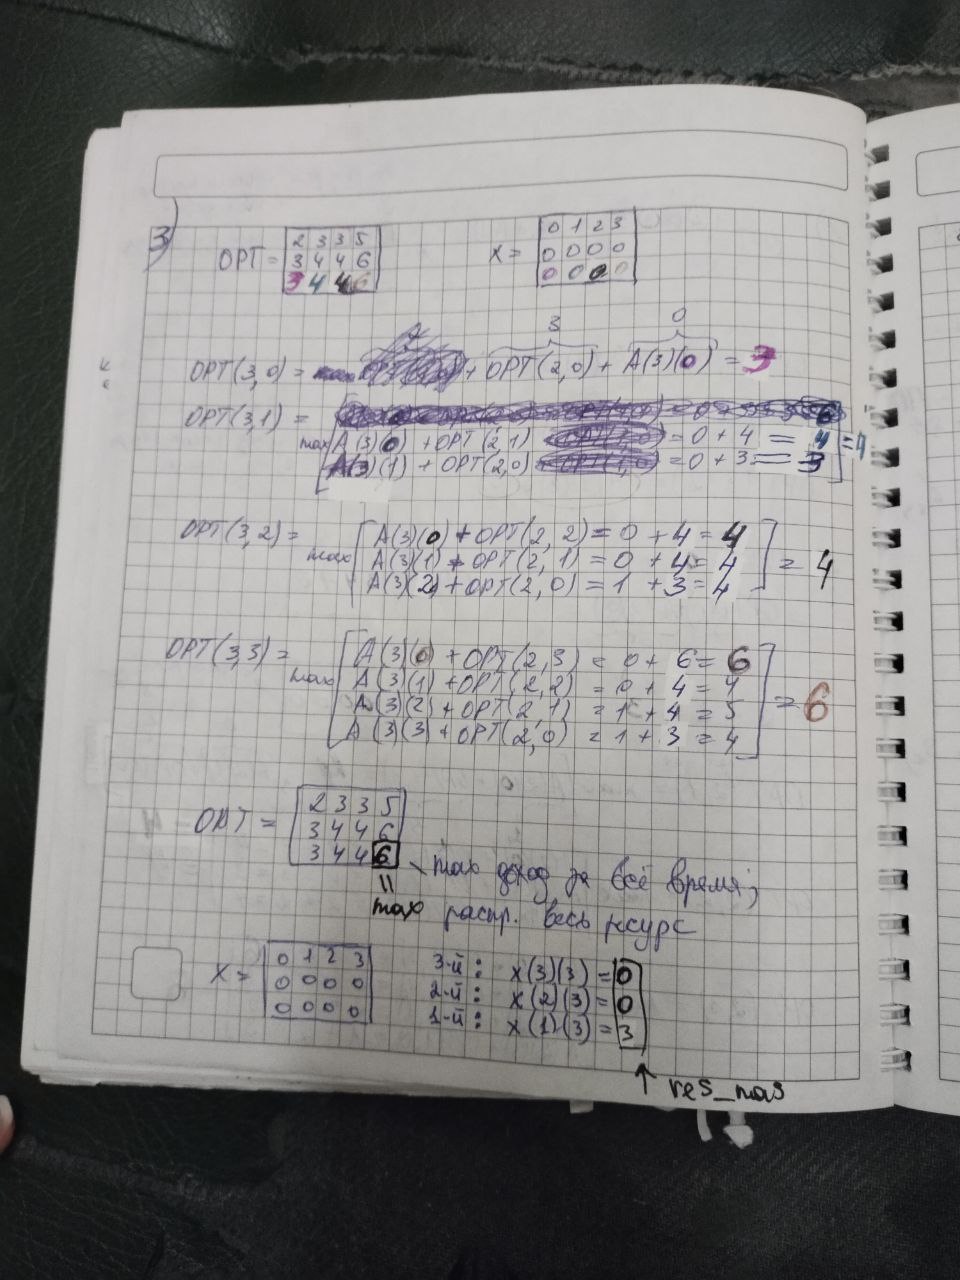 3)
2 3 3 5
OPT = 3 4 4 6
3 4 4 6
0 1 2 3
X = 0 0 0 0
0 0 0 0
3 0
OPT(3,0) = + OPT(2,0) + A(3)(0) = 3
OPT(3,1) =
max A(3)(0) + OPT(2,1) = 0 + 4 = 4 = 4
A(3)(1) + OPT(2,0) = 0 + 3 = 3
OPT(3,2) = max A(3)(0) + OPT(2,2) = 0 + 4 = 4
A(3)(1) + OPT(2,1) = 0 + 4 = 4 = 4
A(3)(2) + OPT(2,0) = 1 + 3 = 4
OPT(3,3) = max A(3)(0) + OPT(2,3) = 0 + 6 = 6
A(3)(1) + OPT(2,2) = 0 + 4 = 4
A(3)(2) + OPT(2,1) = 1 + 4 = 5 = 6
A(3)(3) + OPT(2,0) = 1 + 3 = 4
2 3 3 5
OPT = 3 4 4 6
3 4 4 6 max доход за всё время;
= max распр. весь ресурс
0 1 2 3
X = 0 0 0 0
0 0 0 0
3-й: X(3)(3) = 0
2-й: X(2)(3) = 0
1-й: X(1)(3) = 3
↑ res_mas